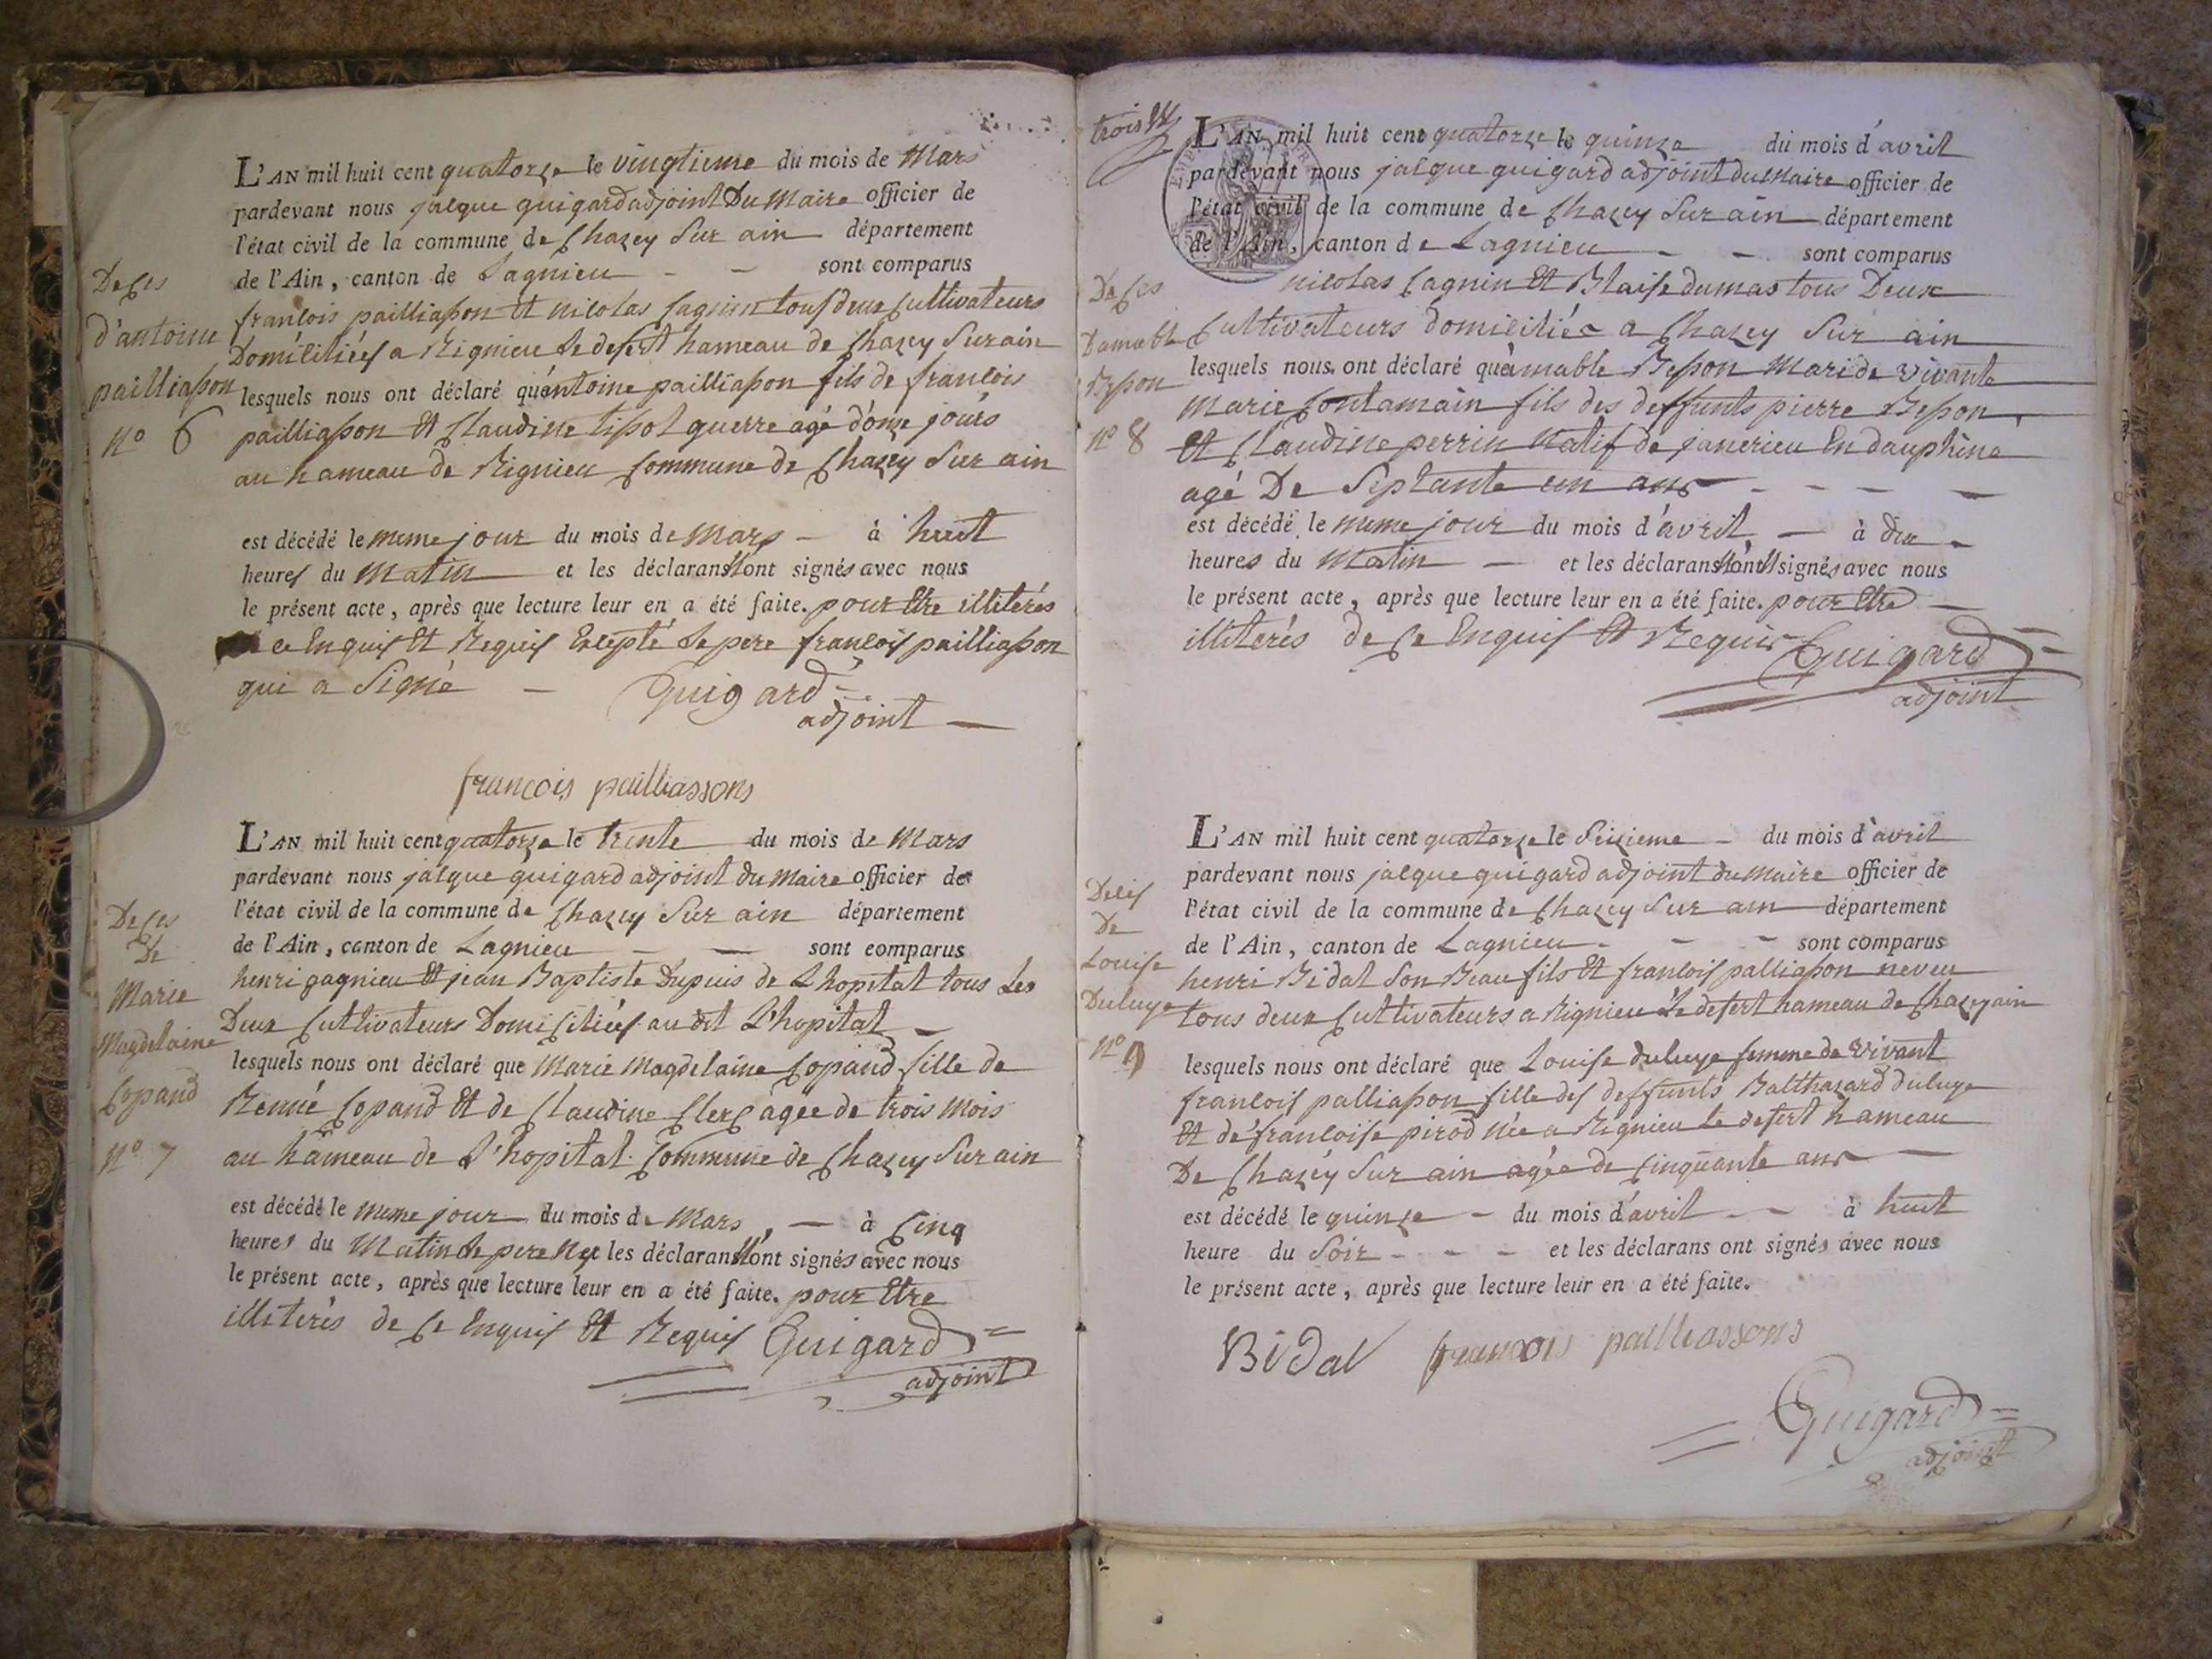 L'AN mil huit cent quatorze le vingtieme du mois de Mars
pardevant nous jacque guigard adjoint Du Maire officier de
l'état civil de la commune de Chazey Sur ain département
de l'Ain, canton de Lagnieu - - sont comparus
francois pailliasson Et nicolas Cagnin tous deux Cultivateurs
Domiciliées a Rignieu Le desert hameau de Chazey Sur ain
lesquels nous ont déclaré qu'antoine pailliasson fils de francois
pailliasson Et Claudine tissot guerre agé d'onze jours
au hameau de Rignieu Commune de Chazey Sur ain
est décédé le meme jour du mois de Mars - à huit
heures du Matin et les déclarans n'ont signés avec nous
le présent acte, après que lecture leur en a été faite. pour Etre illiterés
ce Enquis Et Requis Excepté Le pere francois pailliasson
qui a Signé - Guigard
adjoint
francois pailliassons
Deces
d'antoine
pailliasson
n° 6
L'AN mil huit cent quatorze le trente du mois de Mars
pardevant nous jacque guigard adjoint du Maire officier de
l'état civil de la commune de Chazey Sur ain département
de l'Ain, canton de Lagnieu - - sont comparus
henri gagnieu Et jean Baptiste Dupuis de L'hopital tous Les
Deux Cultivateurs Domiciliées au dit L'hopital -
lesquels nous ont déclaré que Marie Magdelaine Copand fille de
Renné Copand Et de Claudine Clerc agée de trois Mois
au hameau de L'hopital Commune de Chazey Sur ain
est décédé le meme jour du mois de Mars, - à Cinq
heures du Matin Le pere et les déclarans n'ont signés avec nous
le présent acte, après que lecture leur en a été faite. pour Etre
illiterés de Ce Enquis Et Requis Guigard
adjoint
Deces
De
Marie
Magdelaine
Copand
n° 7
trois
L'AN mil huit cent quatorze le quinze du mois d'avril
pardevant nous jacque guigard adjoint du Maire officier de
l'état civil de la commune de Chazey Sur ain département
de l'Ain, canton de Lagnieu - - sont comparus
nicolas Cagnin Et Blaise dumas tous Deux
Cultivateurs domiciliés a Chazey Sur ain
lesquels nous ont déclaré qu'amable Besson Mari de vivante
Marie Contamain fils des deffunts pierre Besson
Et Claudine perrin Natif de janerieu En dauphiné
agé De Septante un ans - - - -
est décédé le meme jour du mois d'avril, - à dix
heures du Matin - et les déclarans n'ont signés avec nous
le présent acte, après que lecture leur en a été faite. pour Etre -
illiterés de Ce Enquis Et Requis Guigard
adjoint
Deces
Damable
Besson
n° 8
L'AN mil huit cent quatorze le Seizieme - du mois d'avril
pardevant nous jacque guigard adjoint du maire officier de
l'état civil de la commune de Chazey Sur ain département
de l'Ain, canton de Lagnieu - - - sont comparus
henri Bidal Son Beau fils Et francois palliasson neveu
tous deux Cultivateurs a Rignieu Le desert hameau de Chazeyain
lesquels nous ont déclaré que Louise duluye femme de Vivant
francois palliasson fille des deffunts Balthazard duluye
Et de francoise pirod née a Rignieu Le desert hameau
De Chazey Sur ain agée de Cinquante ans -
est décédé le quinze - du mois d'avril - - à huit
heure du Soir - - - et les déclarans ont signés avec nous
le présent acte, après que lecture leur en a été faite.
Bidal francois pailliassons
Guigard
adjoint
Deces
De
Louise
Duluye
n° 9